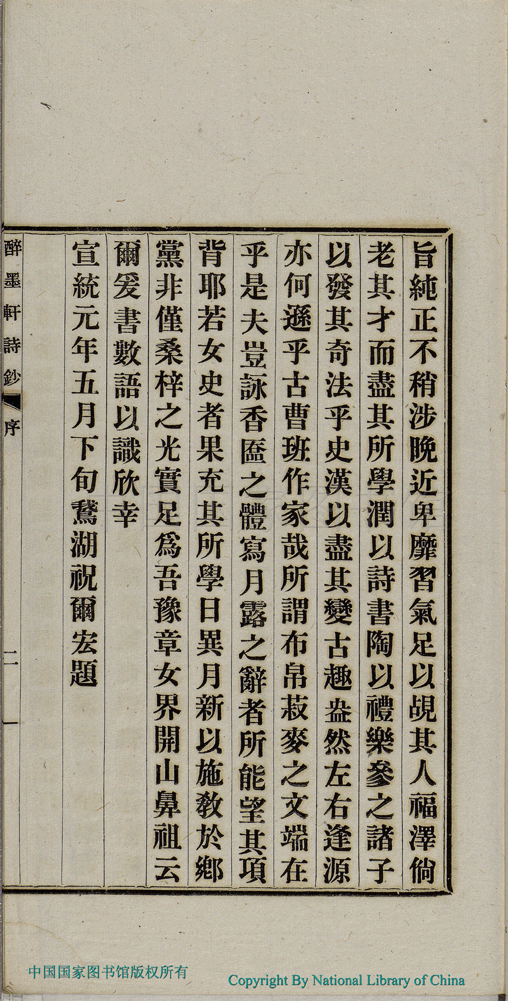 旨純正不稍涉晚近卑靡習氣足以覘其人福澤倘
老其才而盡其所學潤以詩書陶以禮樂參之諸子
以發其奇法乎史漢以盡其變古趣盎然左右逢源
亦何遜乎古曹班作家哉所謂布帛菽麥之文端在
乎是夫豈詠香匳之體寫月露之辭者所能望其項
背耶若女史者果充其所學日異月新以施教於鄉
黨非僅桑梓之光實足為吾豫章女界開山鼻祖云
爾爰書數語以識欣幸
宣統元年五月下旬鵞湖祝爾宏題
醉墨軒詩鈔 序 二
中国国家图书馆版权所有
Copyright By National Library of China